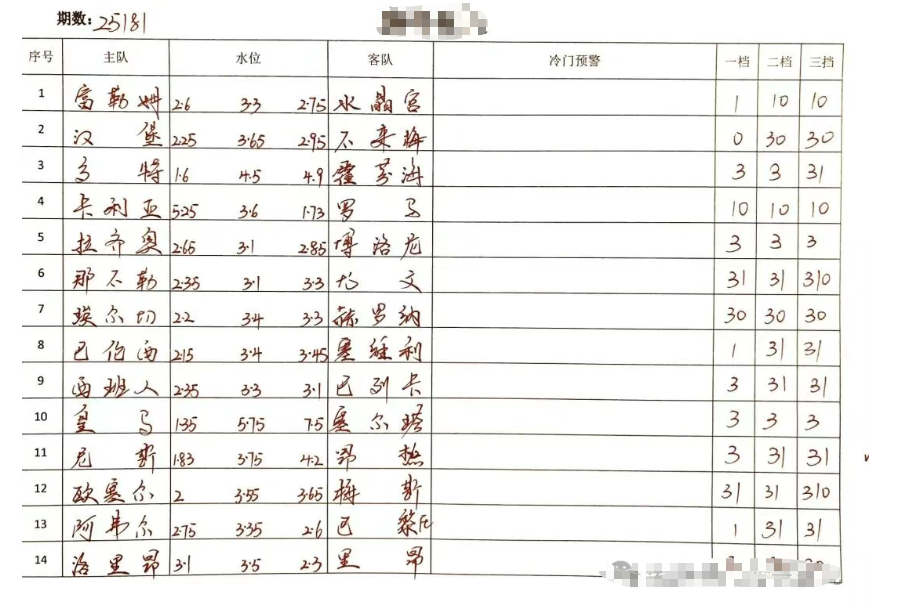 期数: 25181
序号 主队 水位 客队 冷门预警 一档 二档 三挡
1 富勒姆 2.6 3.3 2.75 水晶宫 1 10 10
2 汉堡 2.25 3.65 2.95 不来梅 0 30 30
3 多特 1.6 4.5 4.9 霍芬海 3 3 31
4 卡利亚 5.25 3.6 1.73 罗马 10 10 10
5 拉齐奥 2.65 3.1 2.85 博洛尼 3 3 3
6 那不勒 2.35 3.1 3.3 尤文 31 31 310
7 埃尔切 2.2 3.4 3.3 赫罗纳 30 30 30
8 巴伦西 2.15 3.4 3.45 塞维利 1 31 31
9 西班人 2.35 3.3 3.1 巴列卡 3 31 31
10 皇马 1.35 5.75 7.5 塞尔塔 3 3 3
11 尼斯 1.83 3.75 4.2 昂热 3 31 31
12 欧塞尔 2 3.55 3.65 梅斯 31 31 310
13 阿弗尔 2.75 3.35 2.6 巴黎 1 31 31
14 洛里昂 3.1 3.5 2.3 里昂